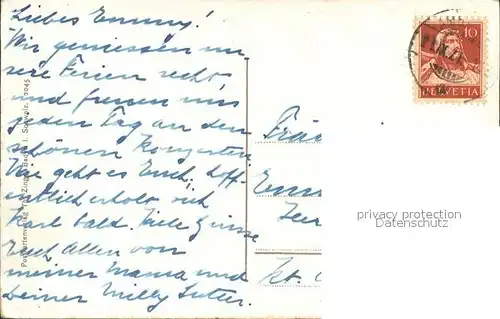 Liebes Emmy!
Wir geniessen un-
sere Ferien recht
und freuen uns
jeden Tag an den
schönen Konzerten.
Wie geht es Euch, hoff-
entlich erholt sich
Karl bald. Viele Grüsse
Euch Allen von
meiner Mama und
Deiner Willy Suter.
Postkartenverlag Baden I. Schweiz. 2045
10
HELVETIA
Fräu
Emm
Kt.
privacy protection
Datenschutz